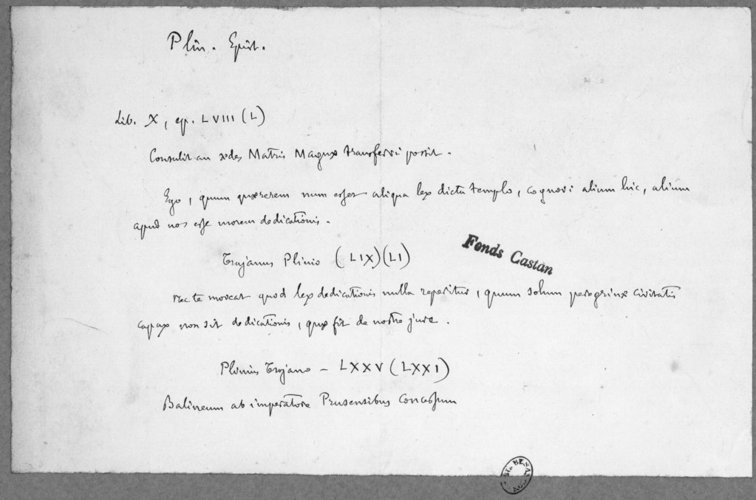 Plin. Epist.
Lib. X, ep. LVIII (L)
Consulit an ædes Matris Magnæ transferri possit.
Ego, quum quærerem num esset aliqua lex dicta templo, cognovi alium hic, alium
apud nos esse morem dedicationis.
Trajanus Plinio (LIX)(LI)
Fonds Castan
nec te moveat quod lex dedicationis nulla reperitur, quum solum peregrinæ civitatis
capax non sit dedicationis, quæ fit de nostro jure.
Plinius Trajano – LXXV (LXXI)
Balineum ab imperatore Prusensibus concessum